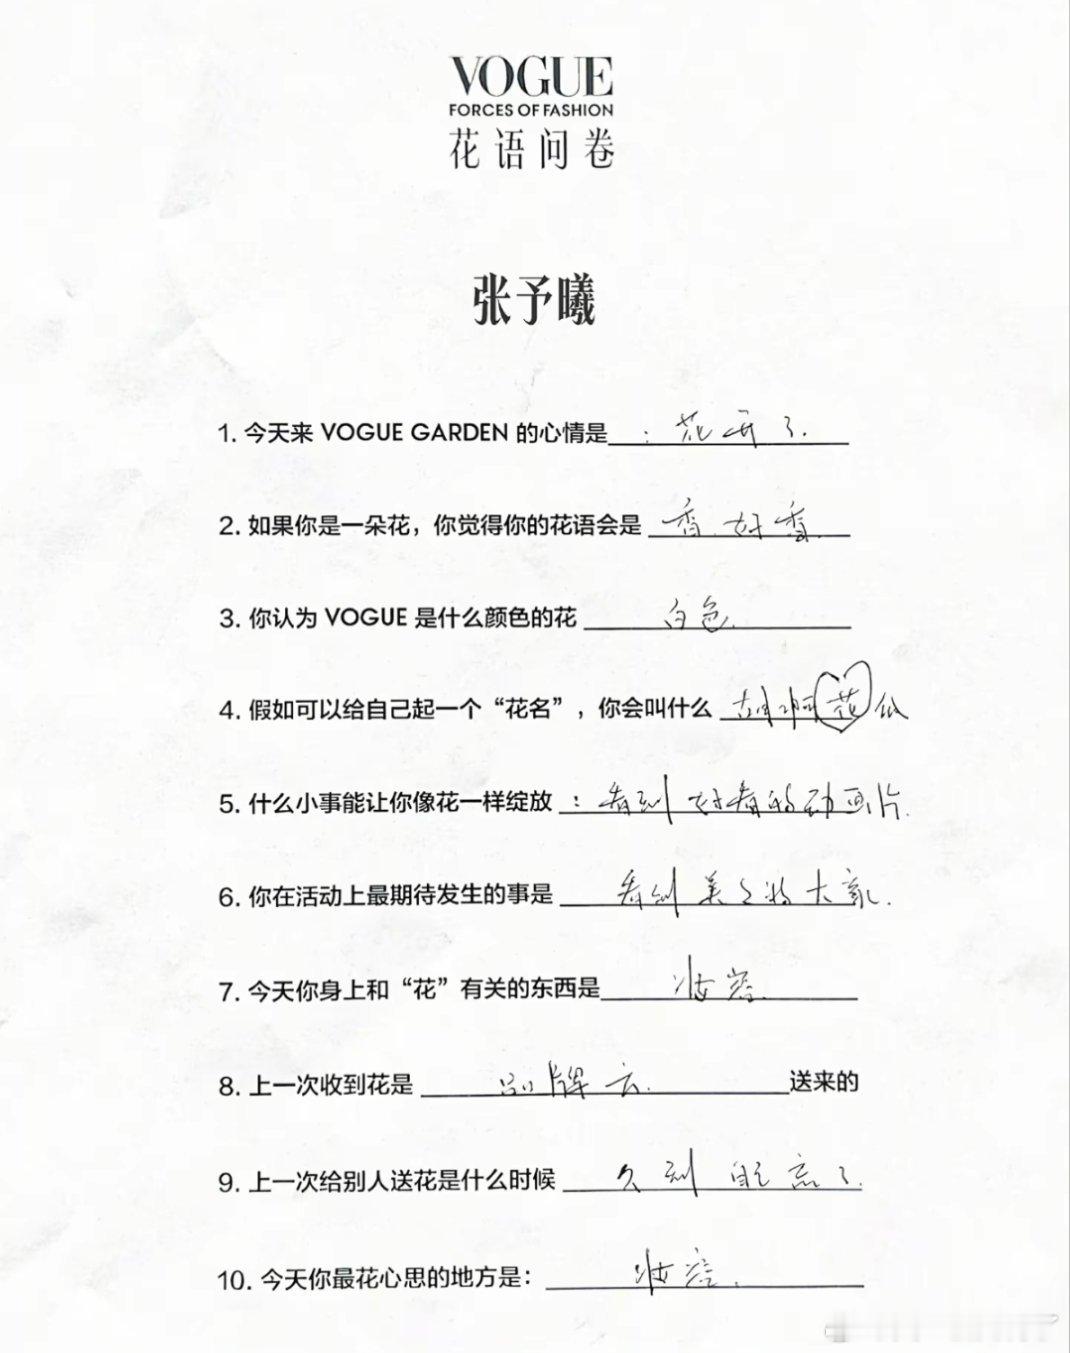 VOGUE
FORCES OF FASHION
花语问卷
张予曦
1. 今天来 VOGUE GARDEN 的心情是：花开了.
2. 如果你是一朵花，你觉得你的花语会是 香.好香.
3. 你认为 VOGUE 是什么颜色的花 白色.
4. 假如可以给自己起一个“花名”，你会叫什么 胡啊花瓜
5. 什么小事能让你像花一样绽放：看到好看的动画片.
6. 你在活动上最期待发生的事是 看到美美的大家.
7. 今天你身上和“花”有关的东西是 妆容.
8. 上一次收到花是 品牌方. 送来的
9. 上一次给别人送花是什么时候 久到 忘了.
10. 今天你最花心思的地方是： 妆容.